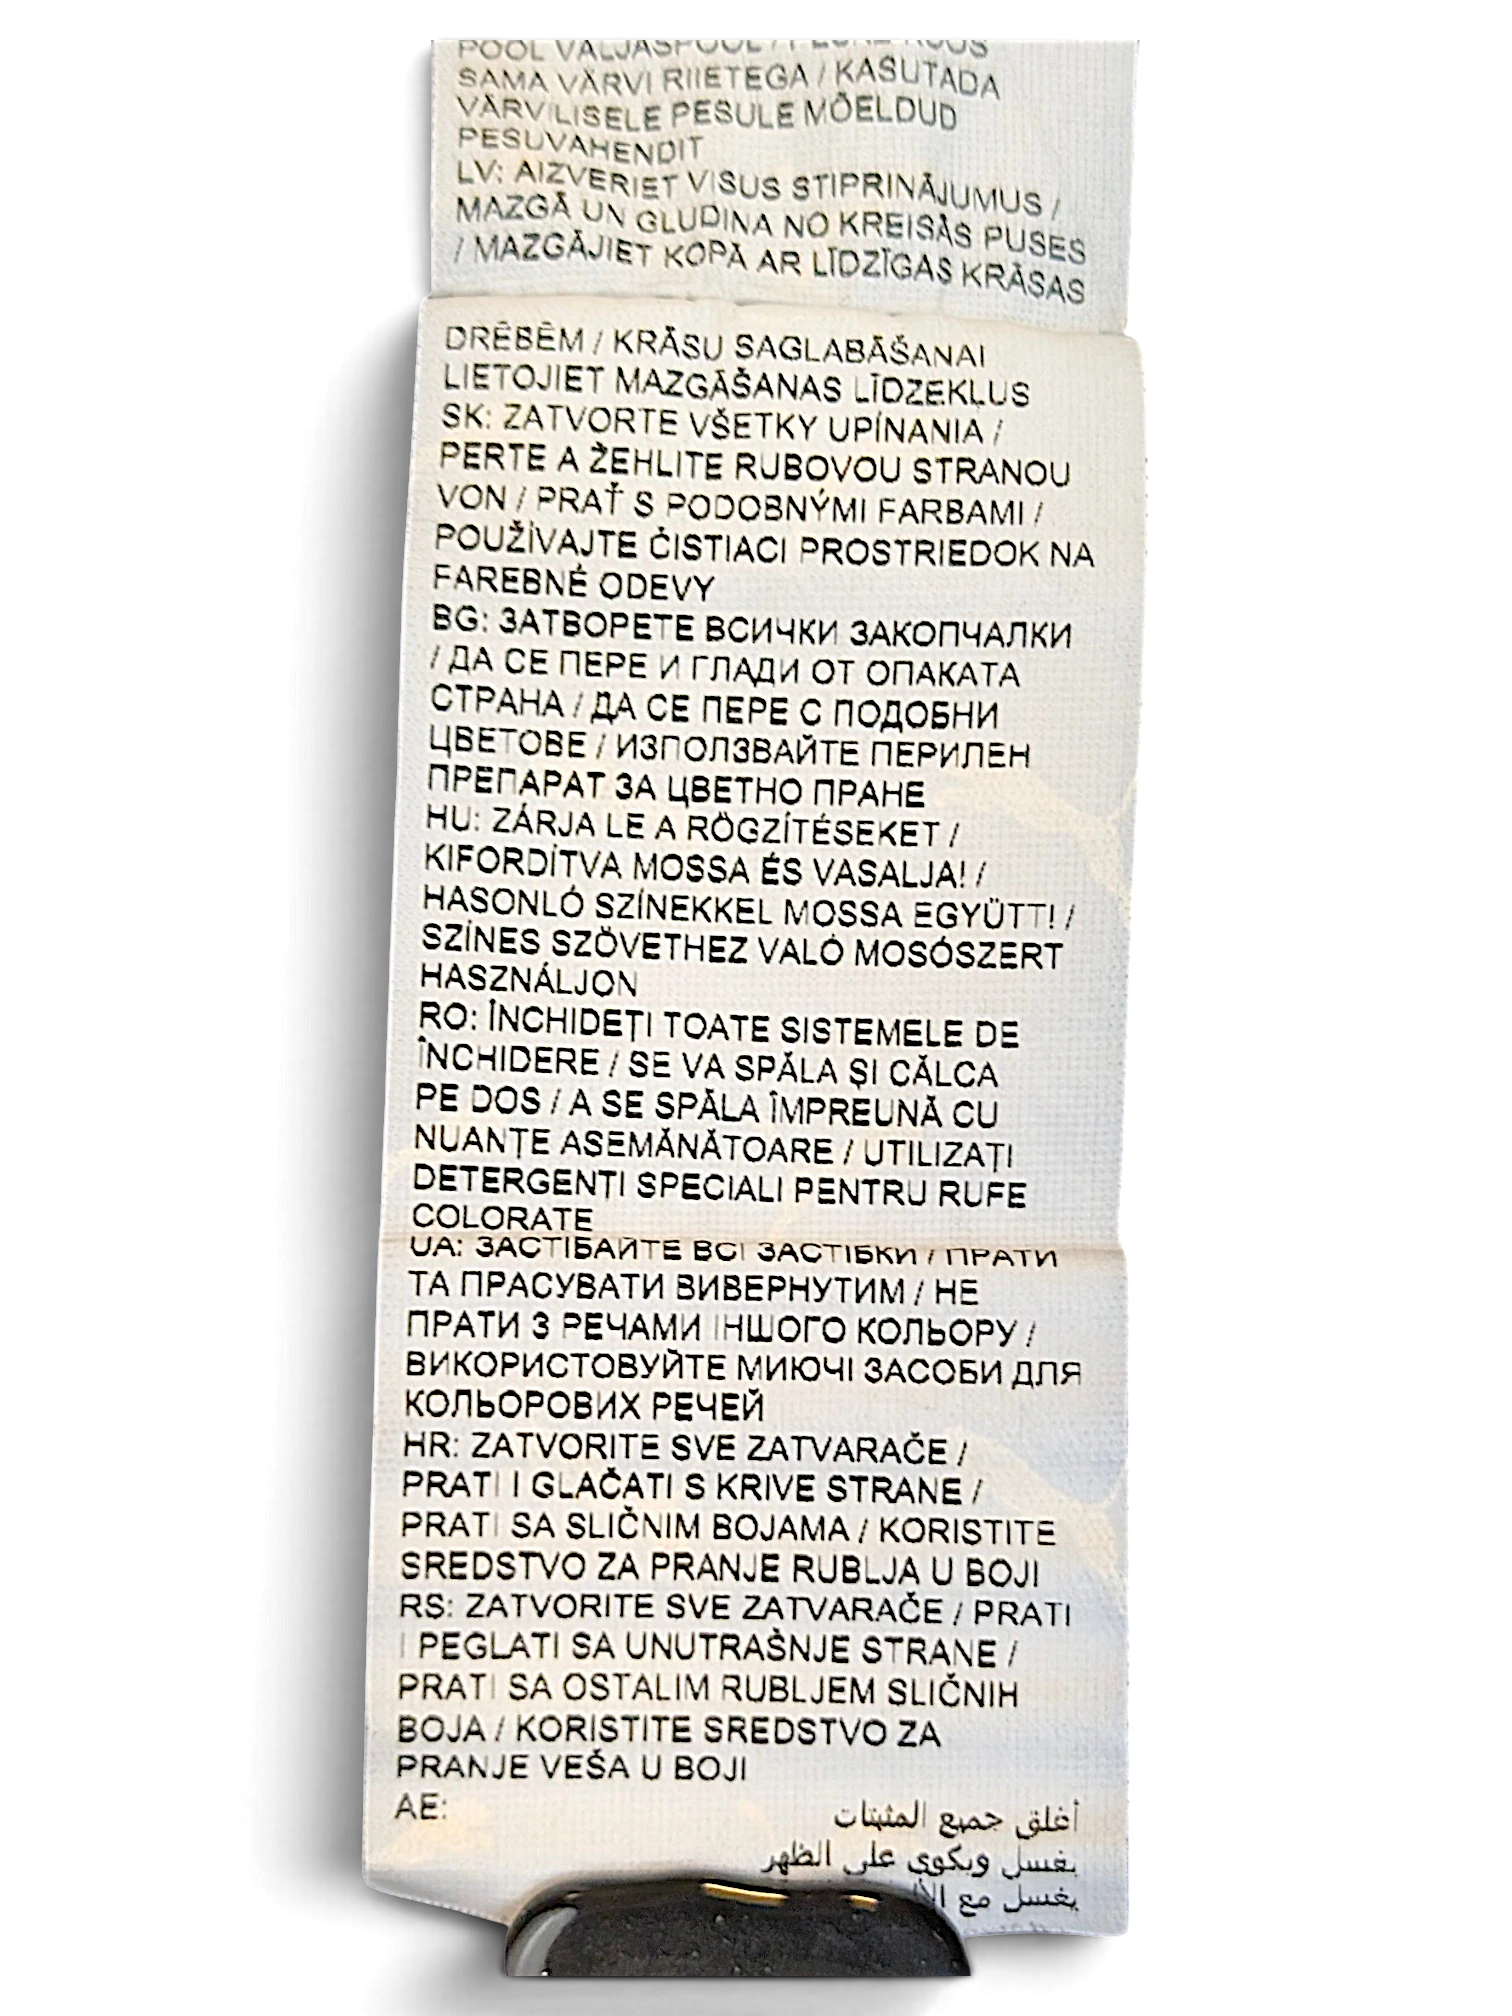 SAMA VÄRVI RIIETEGA / KASUTADA
VÄRVILISELE PESULE MÕELDUD
PESUVAHENDIT
LV: AIZVERIET VISUS STIPRINĀJUMUS /
MAZGĀ UN GLUDINA NO KREISĀS PUSES
/ MAZGĀJIET KOPĀ AR LĪDZĪGAS KRĀSAS
DRĒBĒM / KRĀSU SAGLABĀŠANAI
LIETOJIET MAZGĀŠANAS LĪDZEKĻUS
SK: ZATVORTE VŠETKY UPÍNANIA /
PERTE A ŽEHLITE RUBOVOU STRANOU
VON / PRAŤ S PODOBNÝMI FARBAMI /
POUŽÍVAJTE ČISTIACI PROSTRIEDOK NA
FAREBNÉ ODEVY
BG: ЗАТВОРЕТЕ ВСИЧКИ ЗАКОПЧАЛКИ
/ ДА СЕ ПЕРЕ И ГЛАДИ ОТ ОПАКАТА
СТРАНА / ДА СЕ ПЕРЕ С ПОДОБНИ
ЦВЕТОВЕ / ИЗПОЛЗВАЙТЕ ПЕРИЛЕН
ПРЕПАРАТ ЗА ЦВЕТНО ПРАНЕ
HU: ZÁRJA LE A RÖGZÍTÉSEKET /
KIFORDÍTVA MOSSA ÉS VASALJA! /
HASONLÓ SZÍNEKKEL MOSSA EGYÜTT! /
SZÍNES SZÖVETHEZ VALÓ MOSÓSZERT
HASZNÁLJON
RO: ÎNCHIDEȚI TOATE SISTEMELE DE
ÎNCHIDERE / SE VA SPĂLA ȘI CĂLCA
PE DOS / A SE SPĂLA ÎMPREUNĂ CU
NUANȚE ASEMĂNĂTOARE / UTILIZAȚI
DETERGENȚI SPECIALI PENTRU RUFE
COLORATE
UA: ЗАСТІБАЙТЕ ВСІ ЗАСТІБКИ / ПРАТИ
ТА ПРАСУВАТИ ВИВЕРНУТИМ / НЕ
ПРАТИ З РЕЧАМИ ІНШОГО КОЛЬОРУ /
ВИКОРИСТОВУЙТЕ МИЮЧІ ЗАСОБИ ДЛЯ
КОЛЬОРОВИХ РЕЧЕЙ
HR: ZATVORITE SVE ZATVARAČE /
PRATI I GLAČATI S KRIVE STRANE /
PRATI SA SLIČNIM BOJAMA / KORISTITE
SREDSTVO ZA PRANJE RUBLJA U BOJI
RS: ZATVORITE SVE ZATVARAČE / PRATI
I PEGLATI SA UNUTRAŠNJE STRANE /
PRATI SA OSTALIM RUBLJEM SLIČNIH
BOJA / KORISTITE SREDSTVO ZA
PRANJE VEŠA U BOJI
AE: أغلق جميع المثبتات
يغسل ويكوى على الظهر
يغسل مع